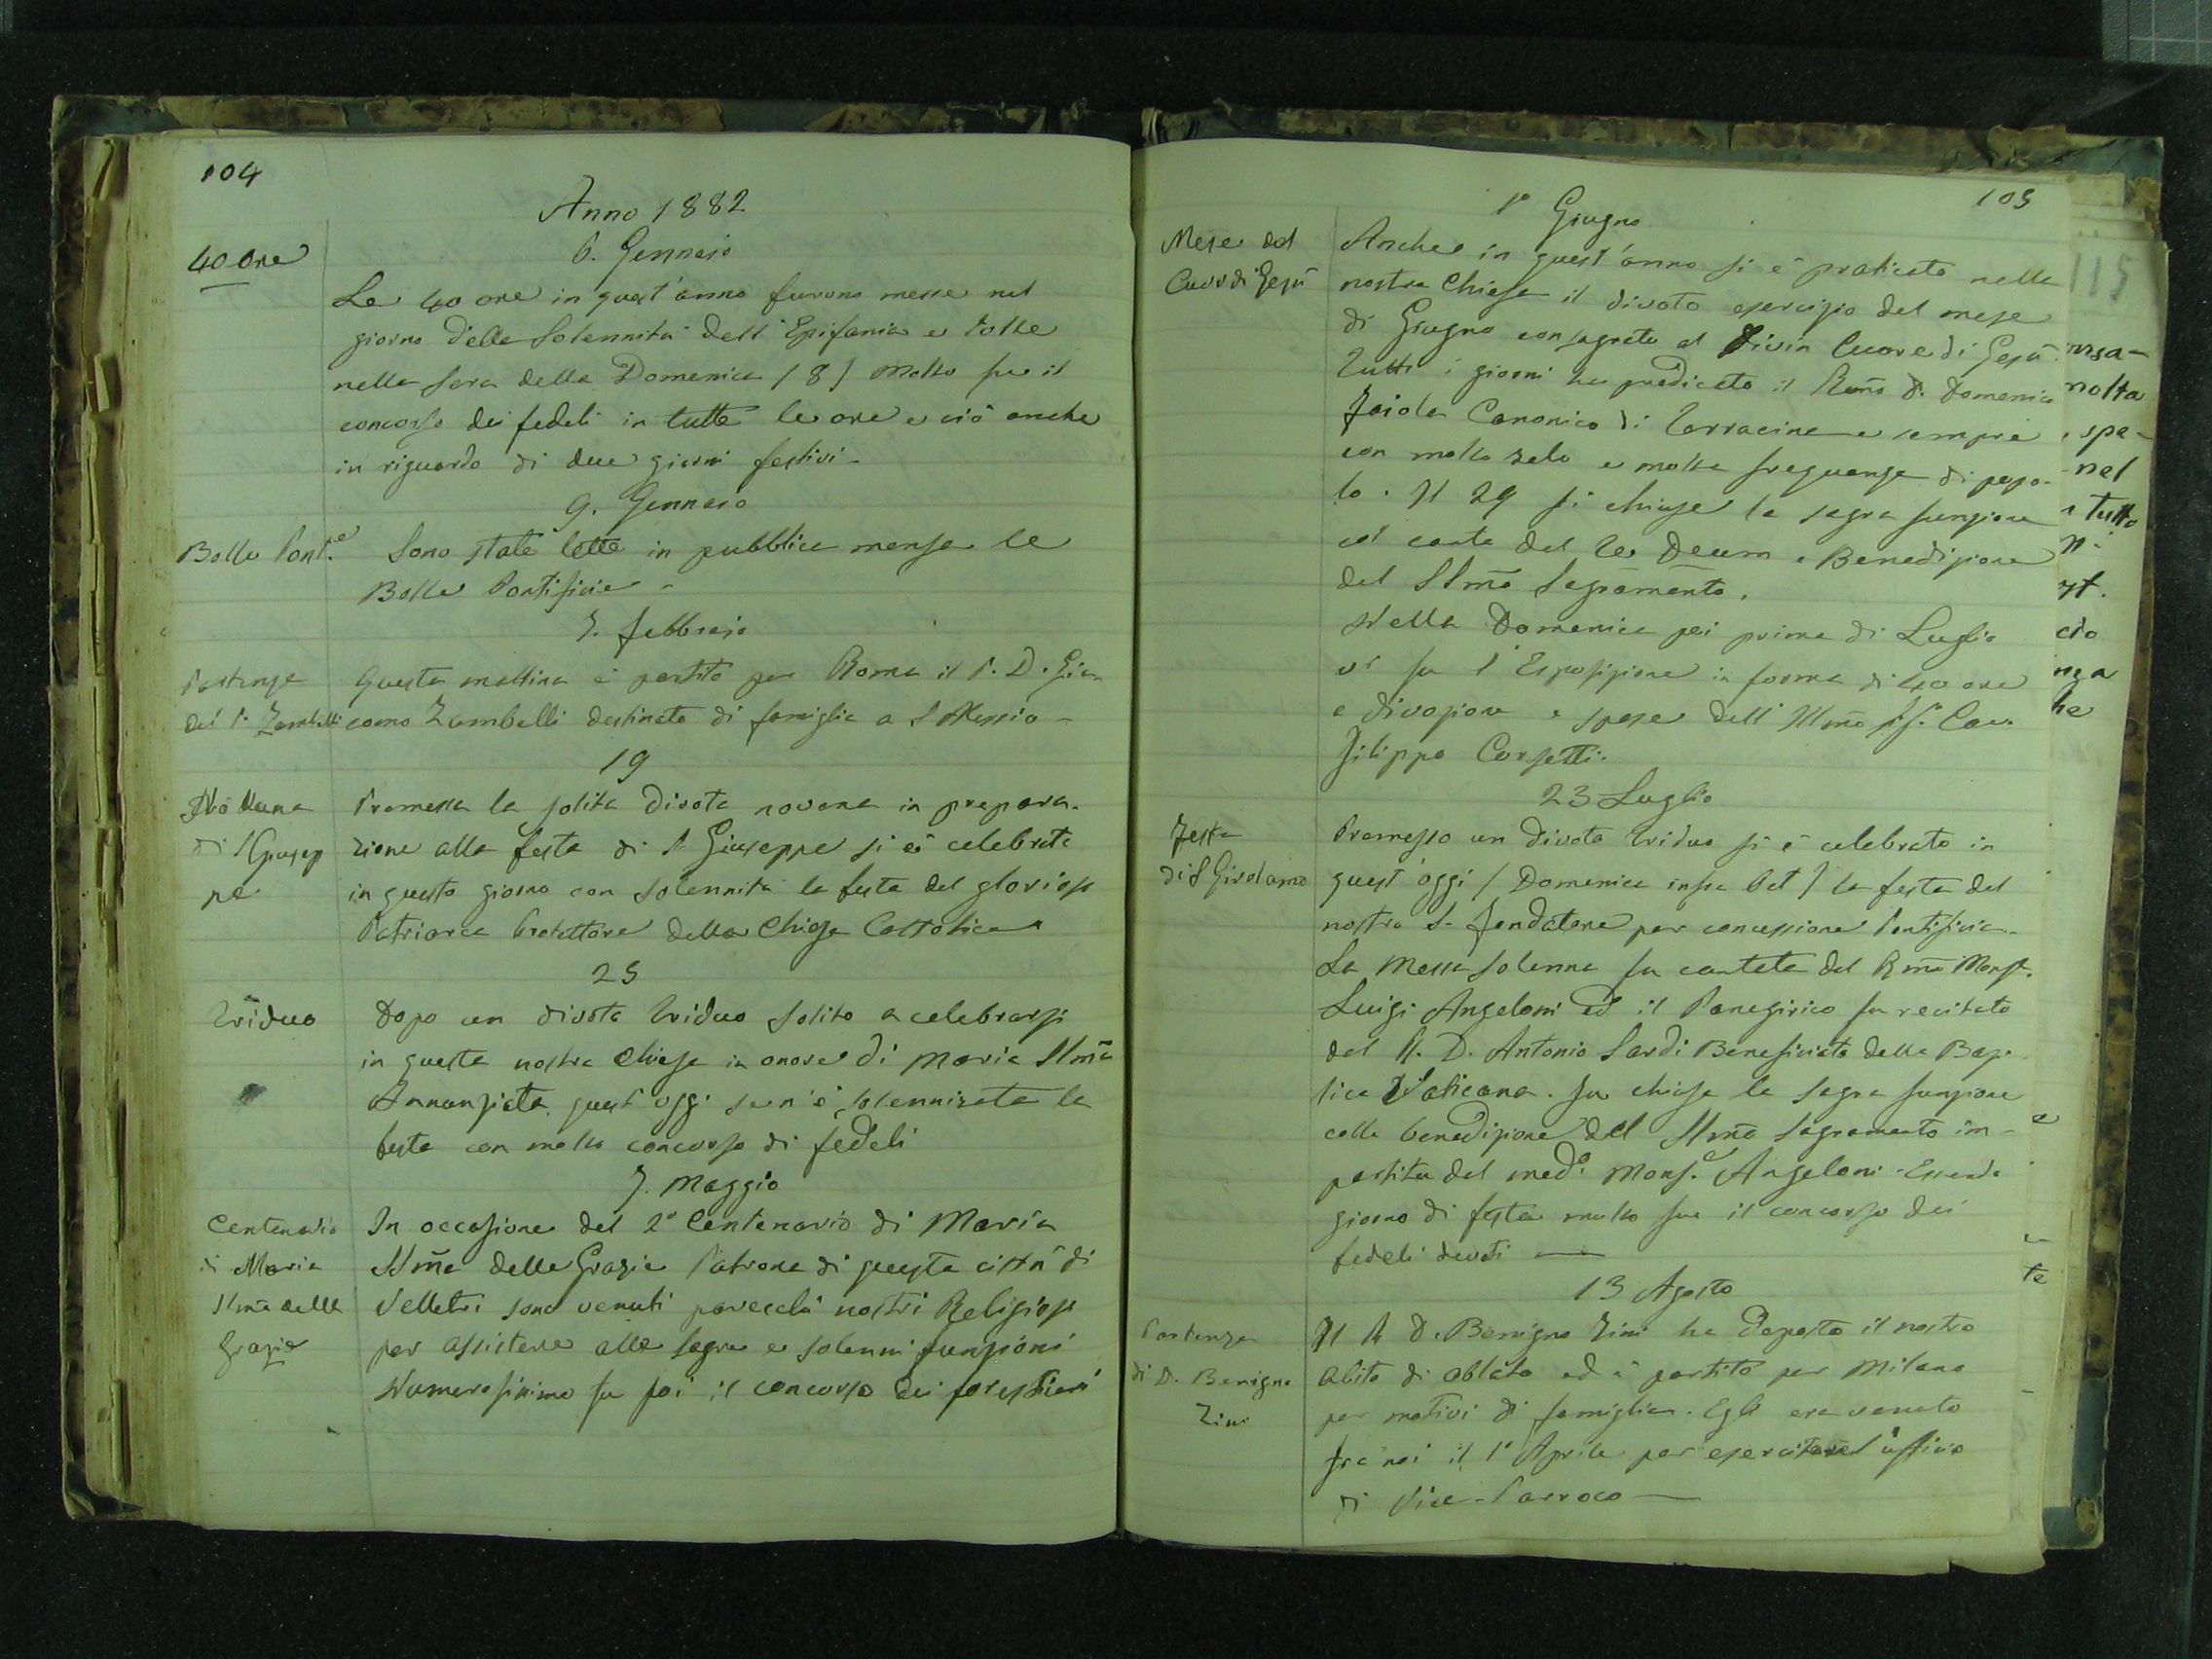 104
Anno 1882
6. Gennaio
40 Ore
Le 40 ore in quest'anno furono messe nel
giorno della Solennità dell'Epifania e tolte
nella sera della Domenica (8) molto fu il
concorso dei fedeli in tutte le ore e ciò anche
in riguardo di due giorni festivi -
9. Gennaio
Bolle Pont.e
Sono state lette in pubblica mensa le
Bolle Pontificie -
7. Febbraio
Partenza
del P. Zambelli
Questa mattina è partito per Roma il P. D. Gia-
como Zambelli destinato di famiglia a S Alessio -
19
di S Giusep
pe
Premessa la solita divota novena in prepara-
zione alla festa di S Giuseppe si è celebrata
in questo giorno con solennità la festa del glorioso
Patriarca Protettore della Chiesa Cattolica
25
Triduo
Dopo un divoto triduo solito a celebrarsi
in questa nostra Chiesa in onore di Maria SSma
Annunziata quest'oggi se n'è solennizata la
festa con molto concorso di fedeli
7. Maggio
Centenario
di Maria
SSma delle
Grazie
In occasione del 2° Centenario di Maria
SSma delle Grazie Patrona di questa città di
Velletri sono venuti parecchi nostri Religiosi
per assistere alle sagre e solenni funzioni
Numerosissimo fu poi il concorso dei forestieri
105
115
1° Giugno
Mese del
Cuor di Gesù
Anche in quest'anno si è praticato nella
nostra Chiesa il divoto esercizio del mese
di Giugno consagrato al Divin Cuore di Gesù.
Tutti i giorni ha predicato il Rmo D. Domenico
Canonico di Terracina e sempre
con molto zelo e molta frequenza di popo-
lo. Il 29 si chiuse la sagra funzione
col canto del Te Deum e Benedizione
del SSmo Sagramento.
Nella Domenica poi prima di Luglio
vi fu l'Esposizione in forma di 40 ore
a divozione e spese dell'Illmo Sig. Cav.
Filippo Corsetti.
23 Luglio
Festa
di S Girolamo
Premesso un divoto triduo si è celebrato in
quest'oggi (Domenica infra Oct) la festa del
nostro S. Fondatore per concessione Pontificia.
La Messa solenne fu cantata dal Rmo Mons.
Luigi Angeloni ed il Panegirico fu recitato
dal R. D. Antonio Sardi Beneficiato della Basi-
lica Vaticana. Fu chiusa la sagra funzione
colla benedizione del SSmo Sagramento im-
partita dal med.o Mons.e Angeloni. Essendo
giorno di festa molto fu il concorso dei
fedeli devoti
13 Agosto
Partenza
di D. Benigno
Zini
Il R D. Benigno Zini ha deposto il nostro
abito di oblato ed è partito per Milano
per motivi di famiglia. Egli era venuto
fra noi il 1° Aprile per esercitare l'ufficio
di Vice-Parroco